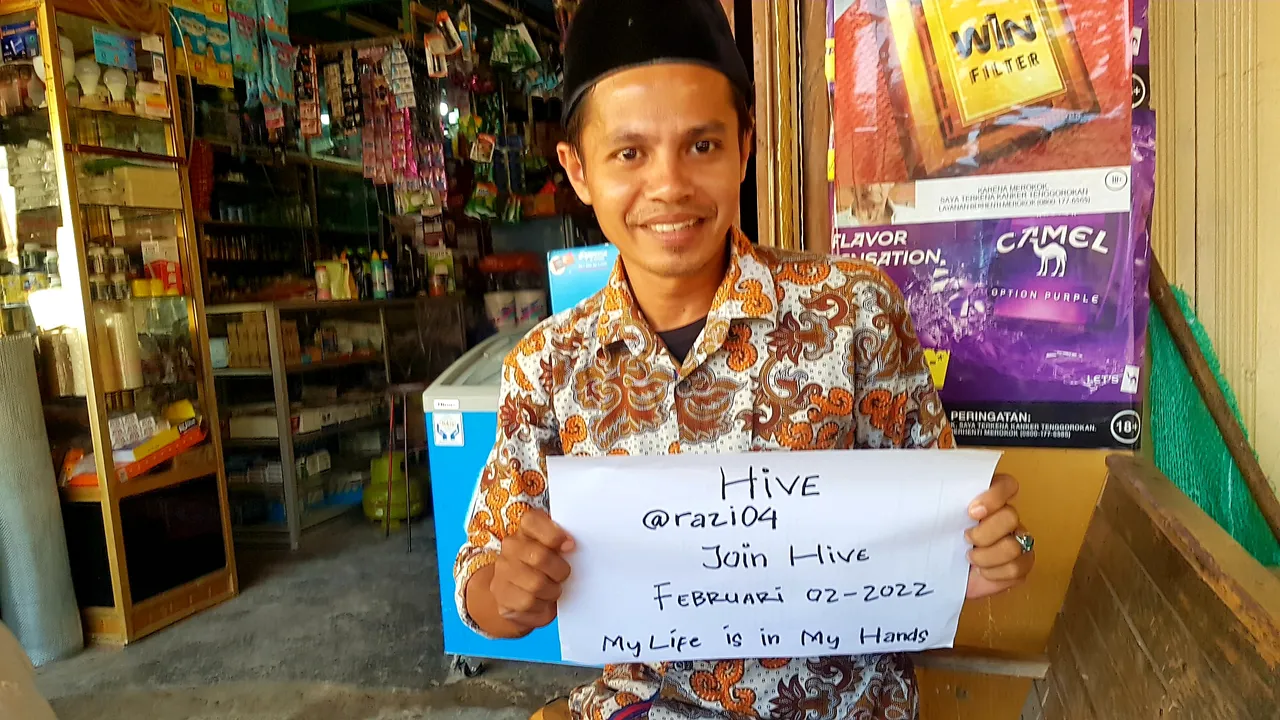 WIN
FILTER
KARENA MEROKOK,
SAYA TERKENA KANKER TENGGOROKAN.
LAYANAN BERHENTI MEROKOK (0800-177-6565)
18+
FLAVOR
SENSATION.
CAMEL
OPTION PURPLE
LET'S
PERINGATAN:
SAYA TERKENA KANKER TENGGOROKAN.
BERHENTI MEROKOK (0800-177-6565)
18+
HiVE
@razi04
Join Hive
FEBRUARI 02-2022
My Life is in My Hands